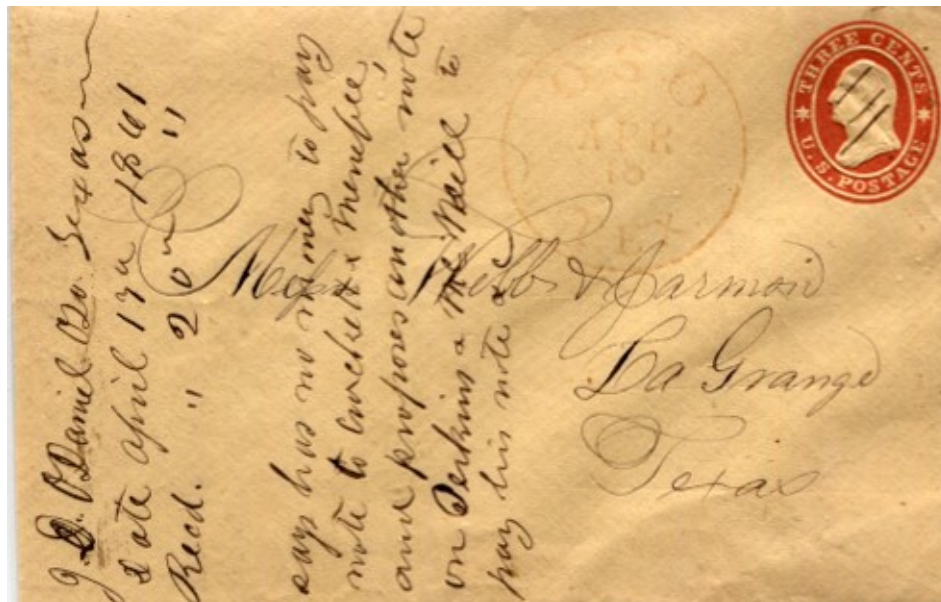 THREE CENTS
U.S. POSTAGE
OSO
APR
18
TEX
Mess Webb & Jarmon
La Grange
Texas
J. D. O'Daniel Oso Texas
Date April 17 1861
Recd. " 20 "
says has no money to pay
note to Crockett & Menefee,
and proposes another note
on Perkins & McNeill to
pay his note